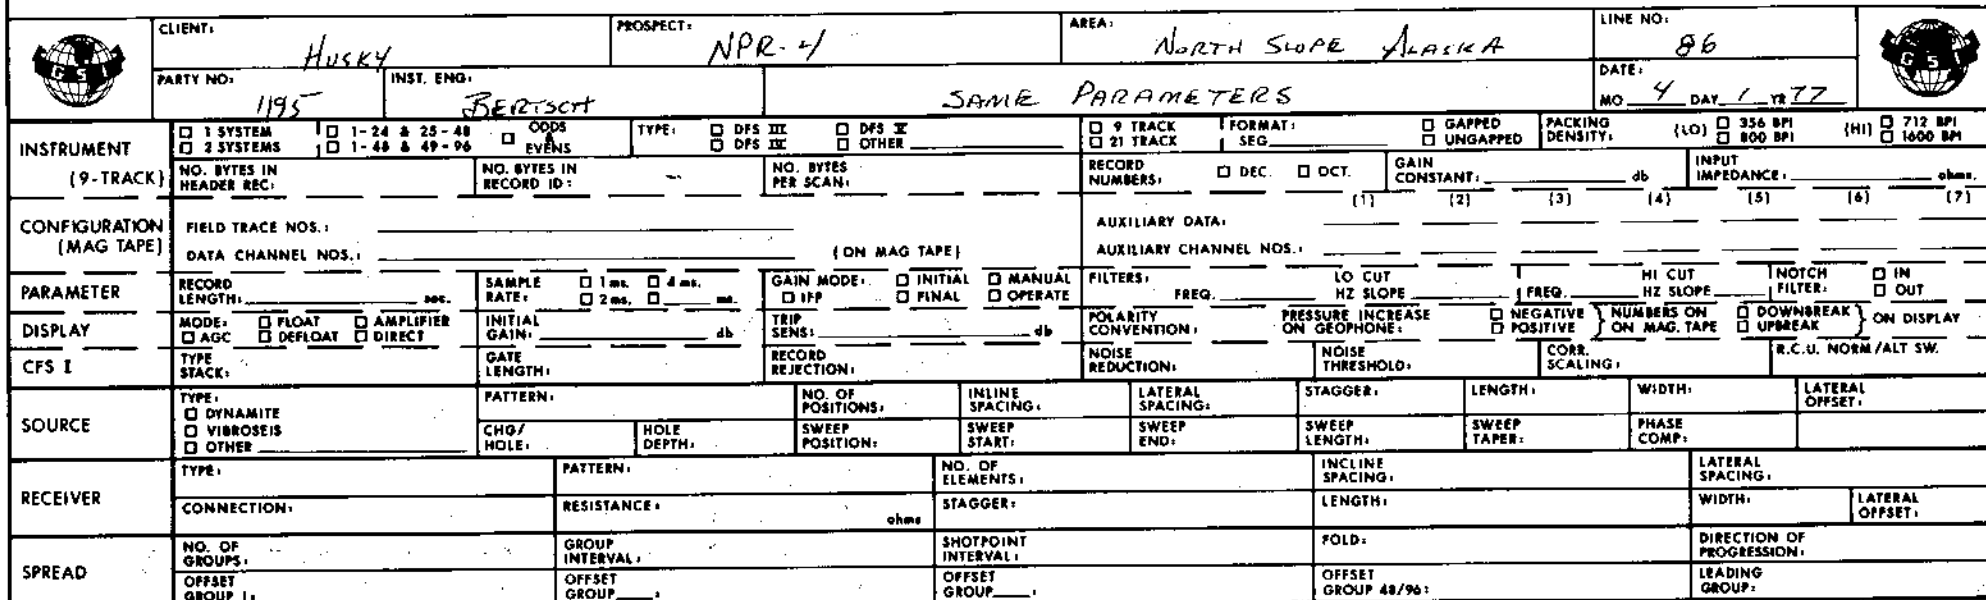 CLIENT: Husky PROSPECT: NPR-4 AREA: NORTH SLOPE ALASKA LINE NO: 86
GSI GSI
PARTY NO: 1195 INST. ENG: BERTSCH SAME PARAMETERS DATE: MO 4 DAY 1 YR 77
INSTRUMENT (9-TRACK)
☐ 1 SYSTEM ☐ 1-24 & 25-48 ☐ ODDS & EVENS TYPE: ☐ DFS III ☐ DFS V ☐ 9 TRACK FORMAT: ☐ GAPPED PACKING DENSITY: (LO) ☐ 356 BPI (HI) ☐ 712 BPI
☐ 2 SYSTEMS ☐ 1-48 & 49-96 ☐ DFS IV ☐ OTHER ☐ 21 TRACK SEG ☐ UNGAPPED ☐ 800 BPI ☐ 1600 BPI
NO. BYTES IN HEADER REC: NO. BYTES IN RECORD ID: NO. BYTES PER SCAN: RECORD NUMBERS: ☐ DEC. ☐ OCT. GAIN CONSTANT: db INPUT IMPEDANCE: ohms.
CONFIGURATION (MAG TAPE)
(1) (2) (3) (4) (5) (6) (7)
FIELD TRACE NOS.: AUXILIARY DATA:
DATA CHANNEL NOS.: (ON MAG TAPE) AUXILIARY CHANNEL NOS.:
PARAMETER
RECORD LENGTH: sec. SAMPLE RATE: ☐ 1 ms. ☐ 4 ms. ☐ 2 ms. ☐ ms. GAIN MODE: ☐ INITIAL ☐ MANUAL ☐ IFP ☐ FINAL ☐ OPERATE FILTERS: LO CUT FREQ. HZ SLOPE HI CUT FREQ. HZ SLOPE NOTCH FILTER: ☐ IN ☐ OUT
DISPLAY
MODE: ☐ FLOAT ☐ AMPLIFIER ☐ AGC ☐ DEFLOAT ☐ DIRECT INITIAL GAIN: db TRIP SENS: db POLARITY CONVENTION: PRESSURE INCREASE ON GEOPHONE: ☐ NEGATIVE ☐ POSITIVE } NUMBERS ON MAG. TAPE ☐ DOWNBREAK ☐ UPBREAK } ON DISPLAY
CFS I TYPE STACK: GATE LENGTH: RECORD REJECTION: NOISE REDUCTION: NOISE THRESHOLD: CORR. SCALING: R.C.U. NORM/ALT SW.
SOURCE
TYPE: ☐ DYNAMITE ☐ VIBROSEIS ☐ OTHER
PATTERN: NO. OF POSITIONS: INLINE SPACING: LATERAL SPACING: STAGGER: LENGTH: WIDTH: LATERAL OFFSET:
CHG/HOLE: HOLE DEPTH: SWEEP POSITION: SWEEP START: SWEEP END: SWEEP LENGTH: SWEEP TAPER: PHASE COMP:
RECEIVER
TYPE: PATTERN: NO. OF ELEMENTS: INCLINE SPACING: LATERAL SPACING:
CONNECTION: RESISTANCE: ohms STAGGER: LENGTH: WIDTH: LATERAL OFFSET:
SPREAD
NO. OF GROUPS: GROUP INTERVAL: SHOTPOINT INTERVAL: FOLD: DIRECTION OF PROGRESSION:
OFFSET GROUP 1: OFFSET GROUP : OFFSET GROUP : OFFSET GROUP 48/96: LEADING GROUP: